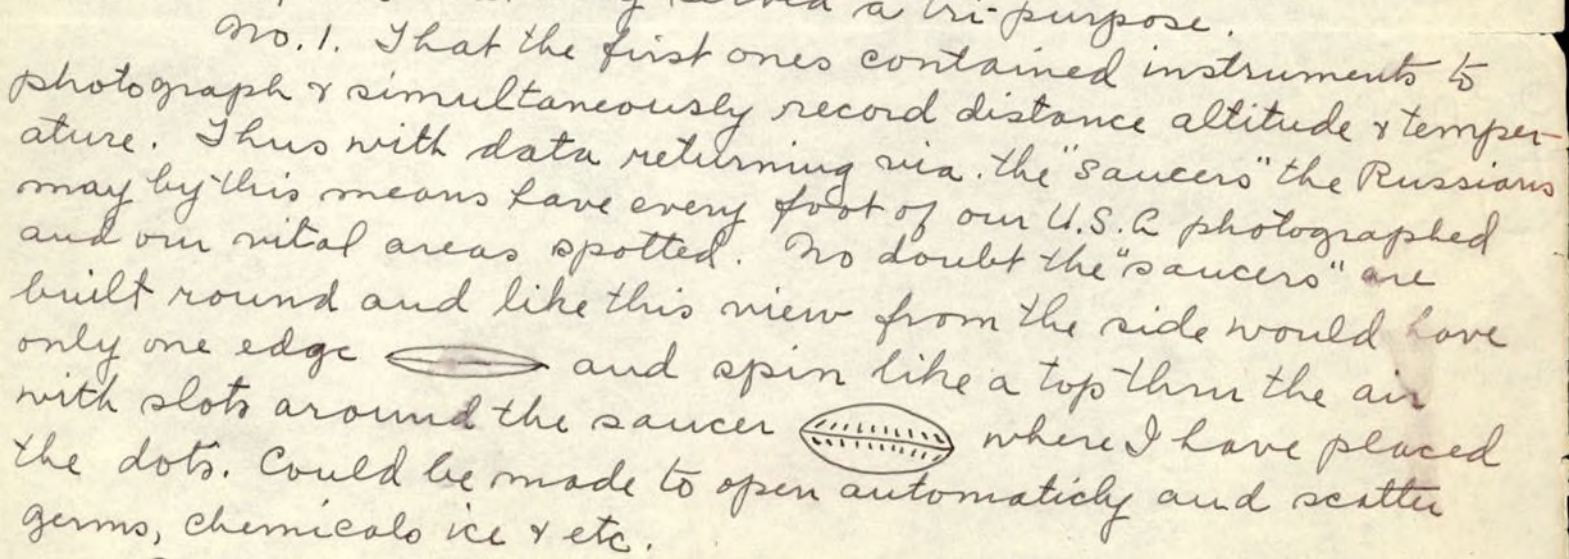 served a tri-purpose.
No. 1. That the first ones contained instruments to
photograph & simultaneously record distance altitude & temper-
ature. Thus with data returning via. the "saucers" the Russians
may by this means have every foot of our U.S.A photographed
and our vital areas spotted. No doubt the "saucers" are
built round and like this view from the side would have
only one edge and spin like a top thru the air
with slots around the saucer where I have placed
the dots. Could be made to open automaticly and scatter
germs, chemicals ice & etc.